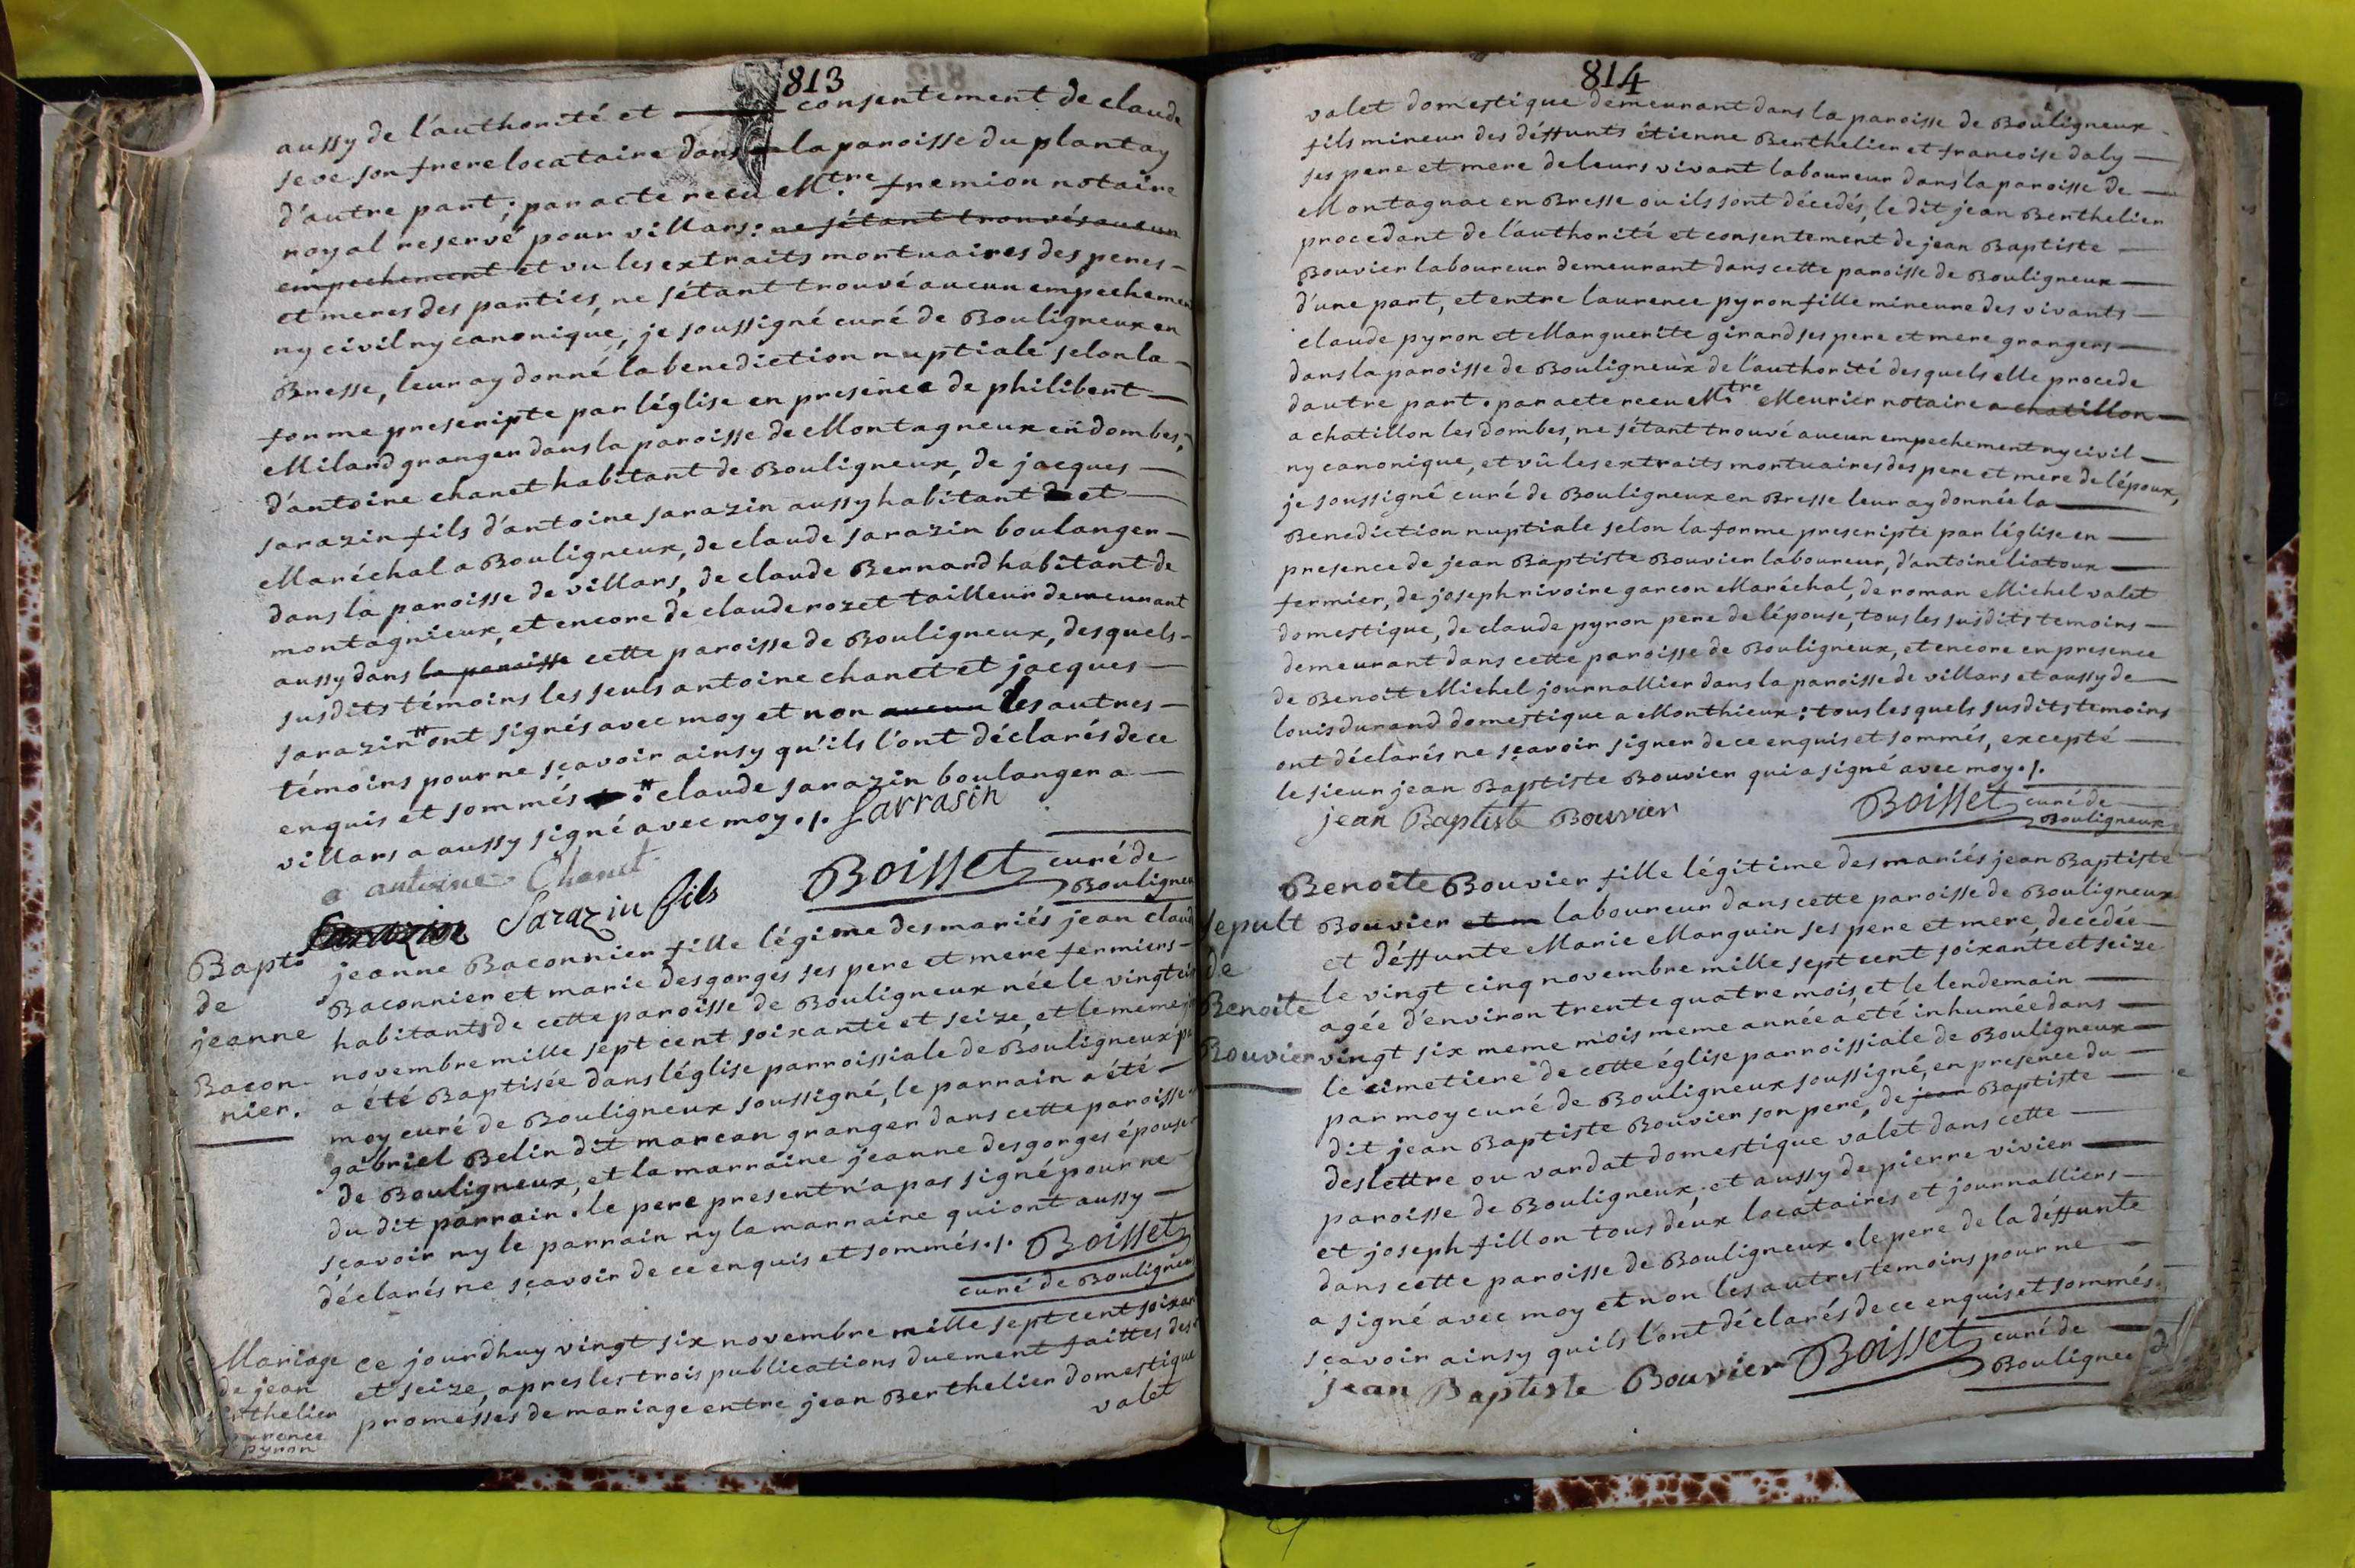 813
aussy de l'authorité et consentement de claude
seve son frere locataire dans la paroisse du plantay
d'autre part; par acte recu M.tre fremion notaire
royal reservé pour villars: ne s'étant trouvés aucun
empechement et vu les extraits mortuaires des peres
et meres des parties, ne s'étant trouvé aucun empechement
ny civil ny canonique, je soussigné curé de Bouligneux en
Bresse, leur ay donné la benediction nuptiale selon la
forme prescripte par l'église en presence de philibert
Miland granger dans la paroisse de Montagneux en dombes,
d'antoine chanet habitant de Bouligneux, de jacques
sarazin fils d'antoine sarazin aussy habitant et
Maréchal a Bouligneux, de claude sarazin boulanger
dans la paroisse de villars, de claude Bernard habitant de
montagnieux, et encore de claude rozet tailleur demeurant
aussy dans la paroisse cette paroisse de Bouligneux, desquels
susdits témoins les seuls antoine chanet et jacques
sarazin # ont signés avec moy et non aucun les autres
témoins pour ne sçavoir ainsy qu'ils l'ont déclarés de ce
enquis et sommés. # claude sarazin boulanger a
villars a aussy signé avec moy ./. Sarrasin
a antoine Chanet
Boisset curé de
Bouligneu
Sarazin Sarazin fils
Bapt.
de
jeanne
Bacon-
nier.
jeanne Baconnier fille légime des mariés jean claud
Baconnier et marie desgorges ses pere et mere fermiers
habitants de cette paroisse de Bouligneux née le vingt ci
novembre mille sept cent soixante et seize, et le meme
a été Baptisée dans l'église parroissiale de Bouligneux p
moy curé de Bouligneux soussigné, le parrain a été
gabriel Belin dit marcan granger dans cette paroisse
de Bouligneux, et la marraine jeanne desgorges épouse
du dit parrain. le pere present n'a pas signé pour ne
sçavoir ny le parrain ny la marraine qui ont aussy
déclarés ne sçavoir de ce enquis et sommés ./. Boisset
curé de Bouligneu
Mariage
de jean
rthelier
urence
pyron
ce jourdhuy vingt six novembre mille sept cent soixan
et seize, apres les trois publications duement faittes des
promesses de mariage entre jean Berthelier domestique
valet
814
valet domestique demeurant dans la paroisse de Bouligneux
fils mineur des déffunts étienne Berthelier et francoise daly
ses pere et mere de leurs vivant laboureur dans la paroisse de
Montagnac en Bresse ou ils sont décedés, le dit jean Berthelier
procedant de l'authorité et consentement de jean Baptiste
Bouvier laboureur demeurant dans cette paroisse de Bouligneux
d'une part, et entre laurence pyron fille mineure des vivants
claude pyron et Marguerite girard ses pere et mere grangers
dans la paroisse de Bouligneux de l'authorité desquels elle procede
dautre part. par acte recu M.tre Meurier notaire a chatillon
a chatillon les dombes, ne s'étant trouvé aucun empechement ny civil
ny canonique, et vû les extraits mortuaires des pere et mere de l'époux,
je soussigné curé de Bouligneux en Bresse leur ay donnée la
Benediction nuptiale selon la forme prescripte par l'église en
presence de jean Baptiste Bouvier laboureur, d'antoine liatoux
fermier, de joseph rivoire garcon Maréchal, de roman Michel valet
domestique, de claude pyron pere de l'épouse, tous les susdits temoins
demeurant dans cette paroisse de Bouligneux, et encore en presence
de Benoit Michel journallier dans la paroisse de villars et aussy de
louis durand domestique a Monthieux: tous lesquels susdits temoins
ont déclarés ne sçavoir signer de ce enquis et sommés, excepté
le sieur jean Baptiste Bouvier qui a signé avec moy ./.
jean Baptiste Bouvier Boisset curé de
Bouligneux
sepult
de
Benoite
Bouvier
Benoite Bouvier fille légitime des mariés jean Baptiste
Bouvier et m laboureur dans cette paroisse de Bouligneux
et déffunte Marie Marguin ses pere et mere, decedée
le vingt cinq novembre mille sept cent soixante et seize
agée d'environ trente quatre mois et le lendemain
vingt six meme mois meme année a été inhumée dans
le cimetiere de cette église parroissiale de Bouligneux
par moy curé de Bouligneux soussigné, en presence du
dit jean Baptiste Bouvier son pere, de jean Baptiste
deslettre ou vardat domestique valet dans cette
paroisse de Bouligneux, et aussy de pierre vivier
et joseph fillon tous deux locataires et journalliers
dans cette paroisse de Bouligneux. le pere de la déffunte
a signé avec moy et non les autres temoins pour ne
sçavoir ainsy quils l'ont déclarés de ce enquis et sommés
jean Baptiste Bouvier Boisset curé de
Bouligneu